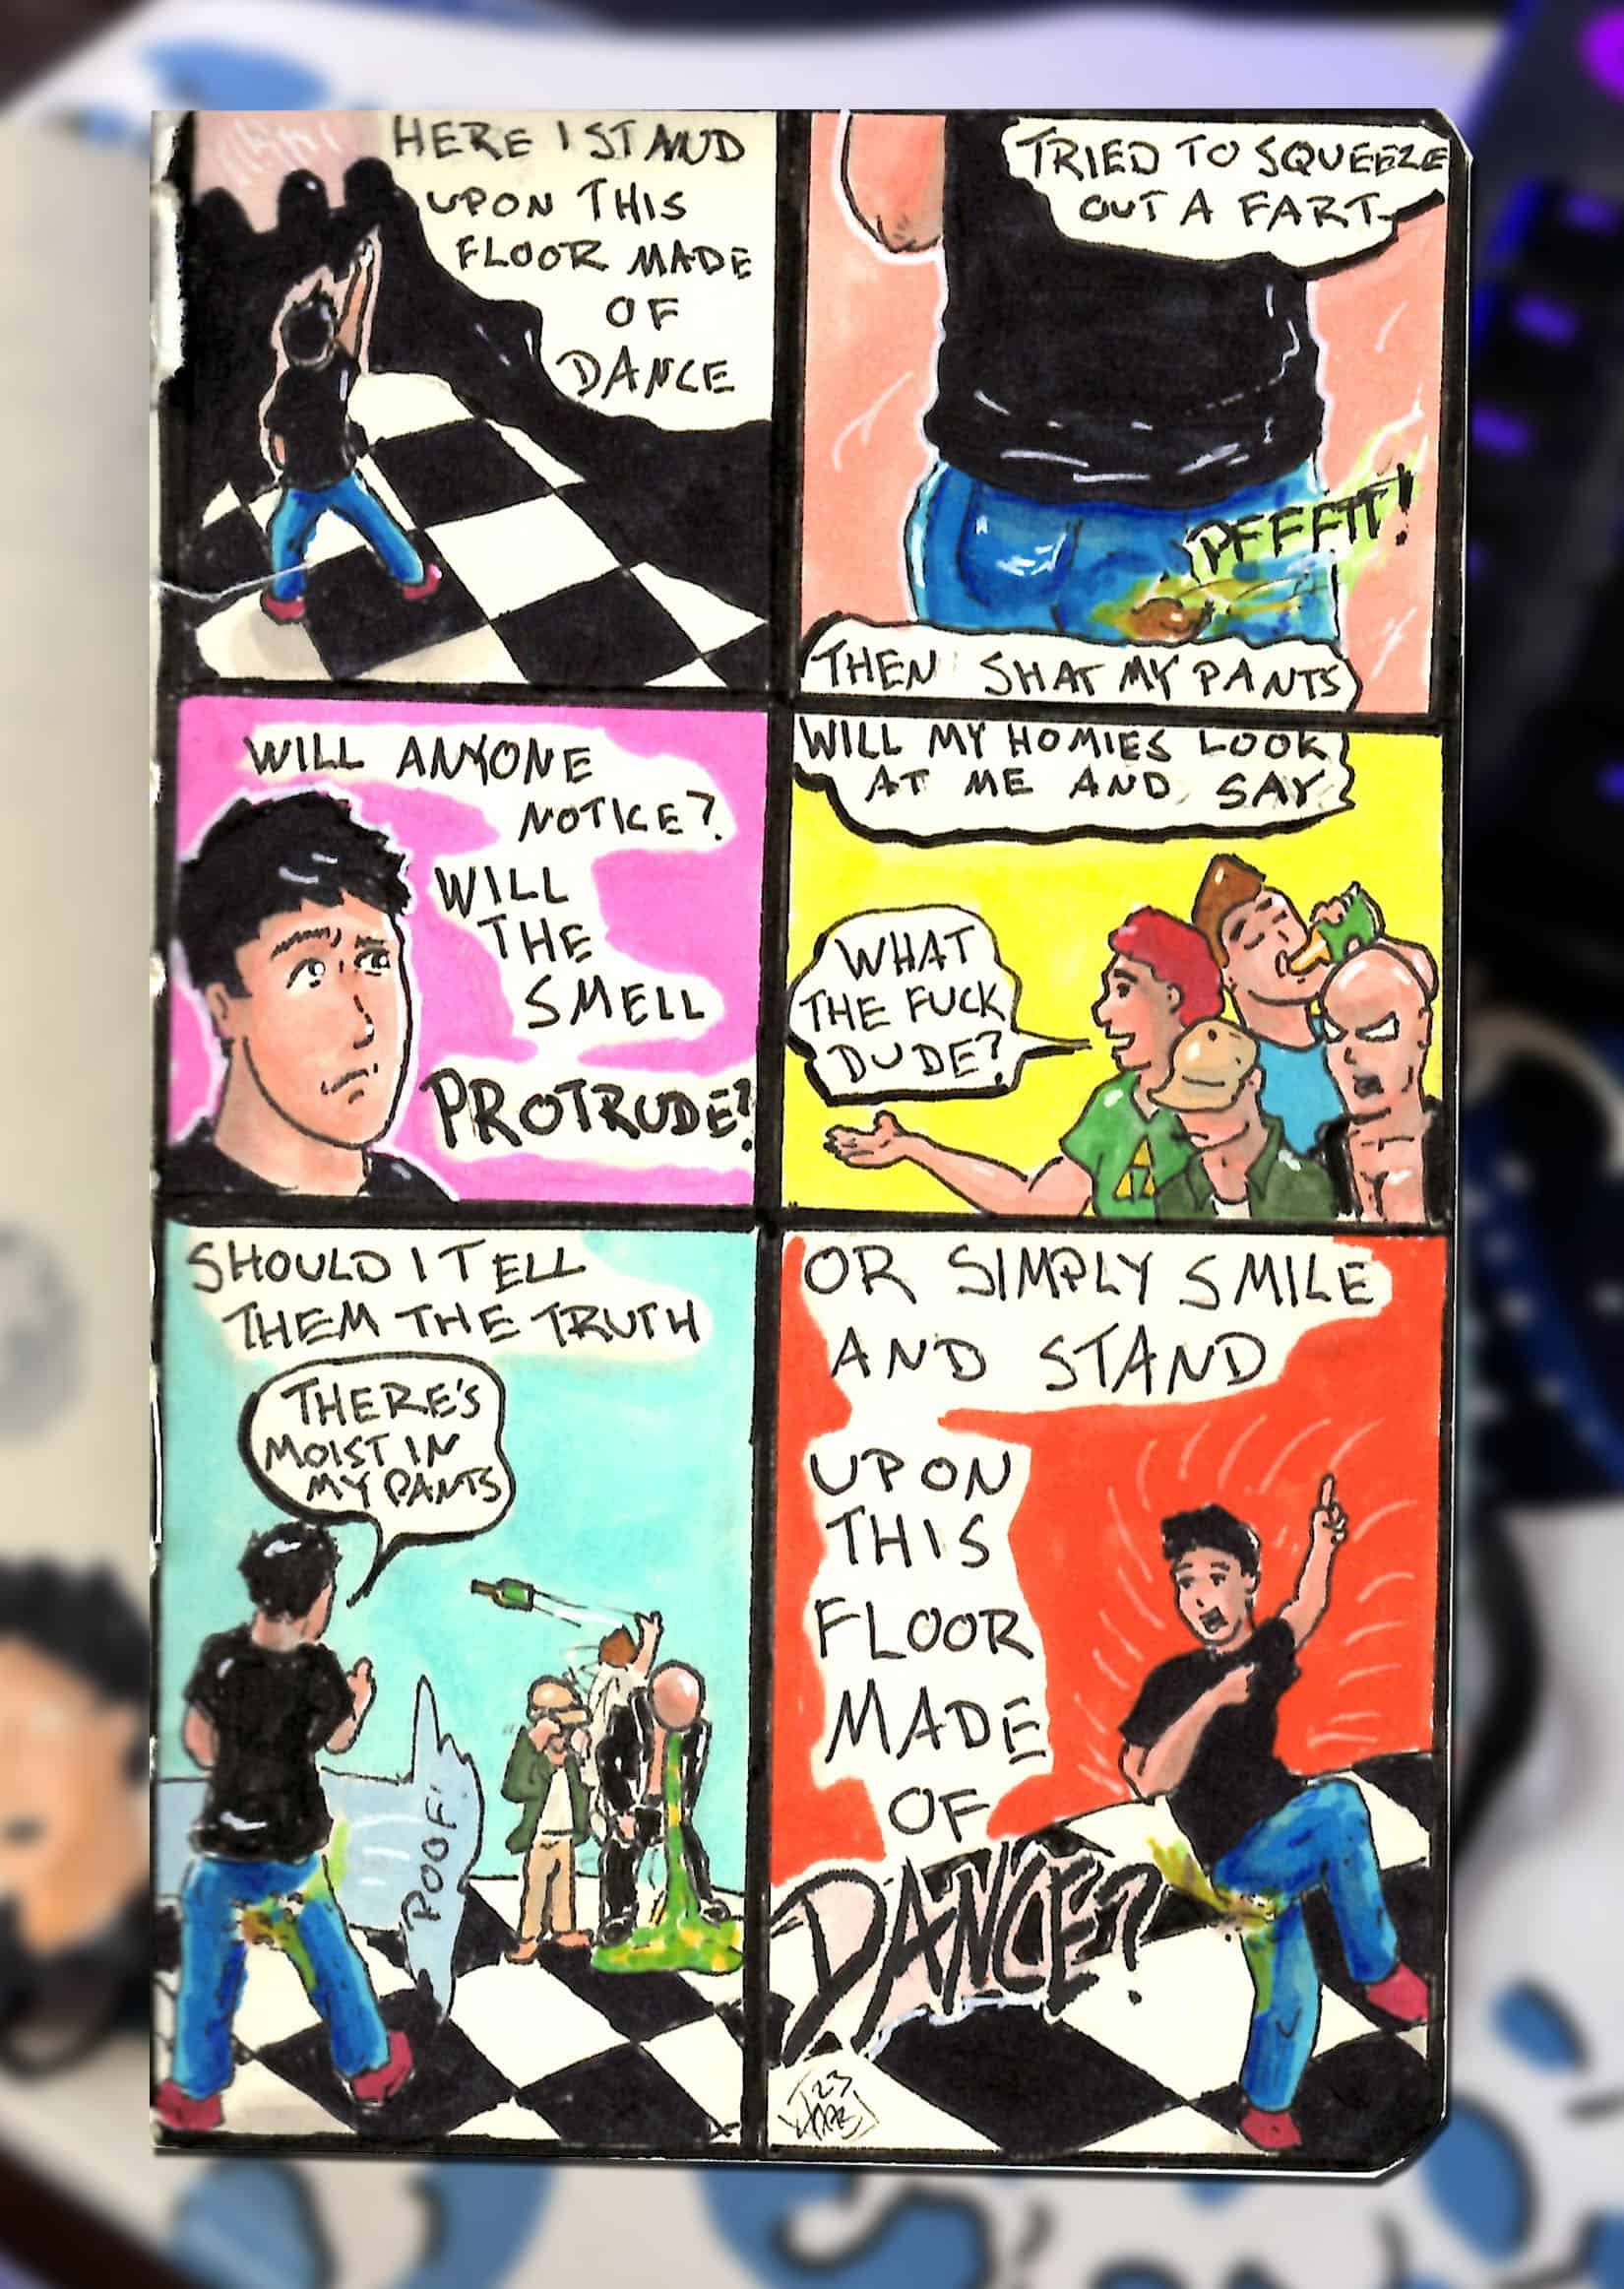 HERE I STAND
UPON THIS
FLOOR MADE
OF
DANCE
TRIED TO SQUEEZE
OUT A FART
PFFFTT!
THEN SHAT MY PANTS
WILL ANYONE
NOTICE?
WILL
THE
SMELL
PROTRUDE?
WILL MY HOMIES LOOK
AT ME AND SAY
WHAT
THE FUCK
DUDE?
SHOULD I TELL
THEM THE TRUTH
THERE'S
MOIST IN
MY PANTS
POOF!
OR SIMPLY SMILE
AND STAND
UPON
THIS
FLOOR
MADE
OF
DANCE?
23